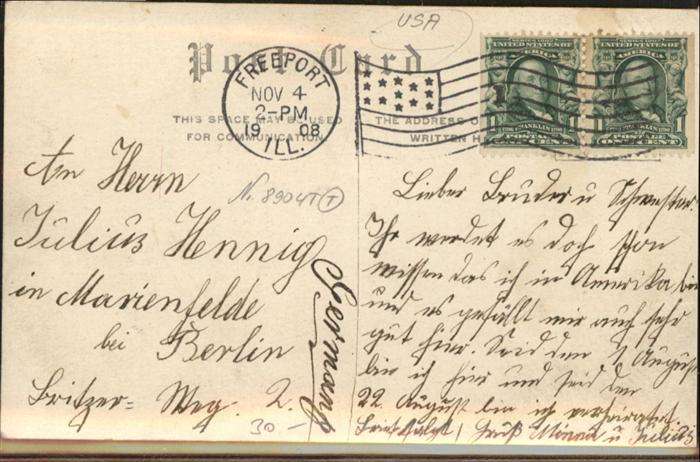 USA
Post Card
THIS SPACE MAY BE USED
FOR COMMUNICATION
THE ADDRESS
WRITTEN H
FREEPORT
NOV 4
2-PM
1908
ILL.
SERIES 1902
UNITED STATES OF
AMERICA
FRANKLIN
POSTAGE
ONE CENT
SERIES 1902
UNITED STATES OF
AMERICA
FRANKLIN
POSTAGE
ONE CENT
An Herrn
N. 8904T T
Julius Hennig
in Marienfelde
bei Berlin
Britzer= Weg. 2.
Germany
30 -
Lieber Bruder u Schwester
Ihr werdet es doch schon
wissen das ich in Amerika bin
und es gefällt mir auch sehr
gut hier. Seid den 7 August
bin ich hier und seid den
22. August bin ich verheiratet.
Gruß Minna u Julius